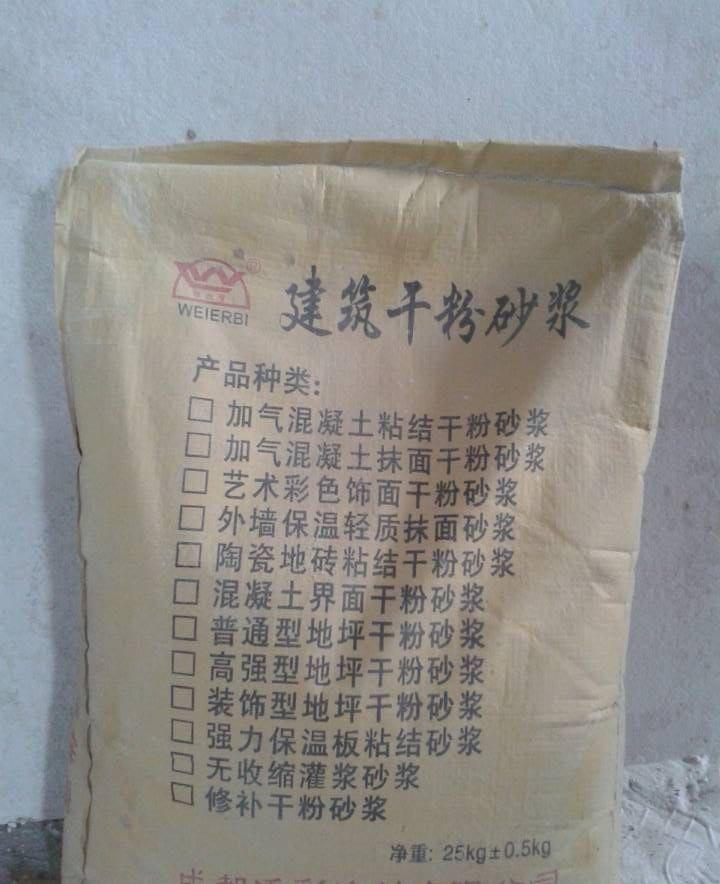 WEIERBI
建筑干粉砂浆
产品种类:
□ 加气混凝土粘结干粉砂浆
□ 加气混凝土抹面干粉砂浆
□ 艺术彩色饰面干粉砂浆
□ 外墙保温轻质抹面砂浆
□ 陶瓷地砖粘结干粉砂浆
□ 混凝土界面干粉砂浆
□ 普通型地坪干粉砂浆
□ 高强型地坪干粉砂浆
□ 装饰型地坪干粉砂浆
□ 强力保温板粘结砂浆
□ 无收缩灌浆砂浆
□ 修补干粉砂浆
净重: 25kg±0.5kg